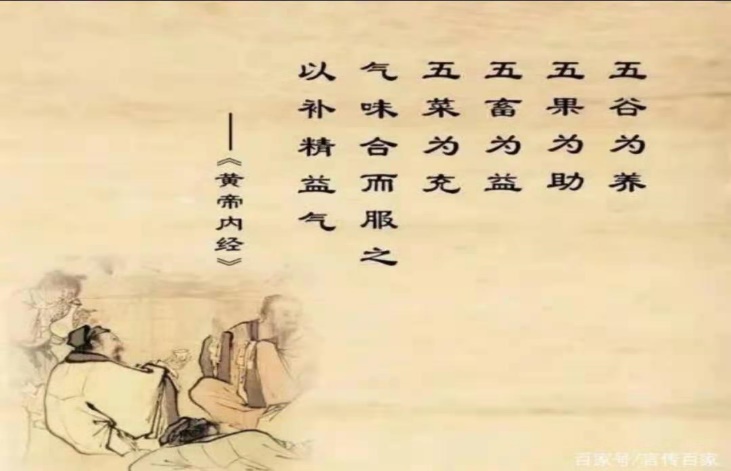 五谷为养
五果为助
五畜为益
五菜为充
气味合而服之
以补精益气
——《黄帝内经》
百家号/言传百家